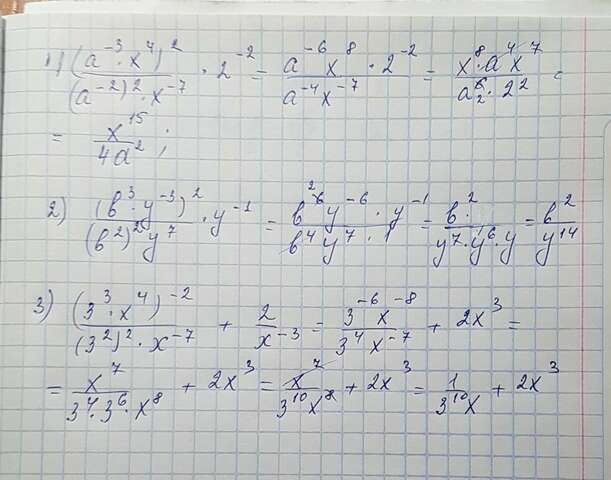 1) (a^-3 · x^4)^2 / ((a^-2)^2 · x^-7) · 2^-2 = a^-6 x^8 / (a^-4 x^-7) · 2^-2 = x^8 · a^4 x^7 / (a^6 · 2^2) =
= x^15 / (4a^2) ;
2) (b^3 · y^-3)^2 / ((b^2)^2 y^7) · y^-1 = b^6 y^-6 · y^-1 / (b^4 y^7 · 1) = b^2 / (y^7 · y^6 · y) = b^2 / y^14
3) (3^3 · x^4)^-2 / ((3^2)^2 · x^-7) + 2 / x^-3 = 3^-6 x^-8 / (3^4 x^-7) + 2x^3 =
= x^7 / (3^4 · 3^6 · x^8) + 2x^3 = x^7 / (3^10 x^8) + 2x^3 = 1 / (3^10 x) + 2x^3